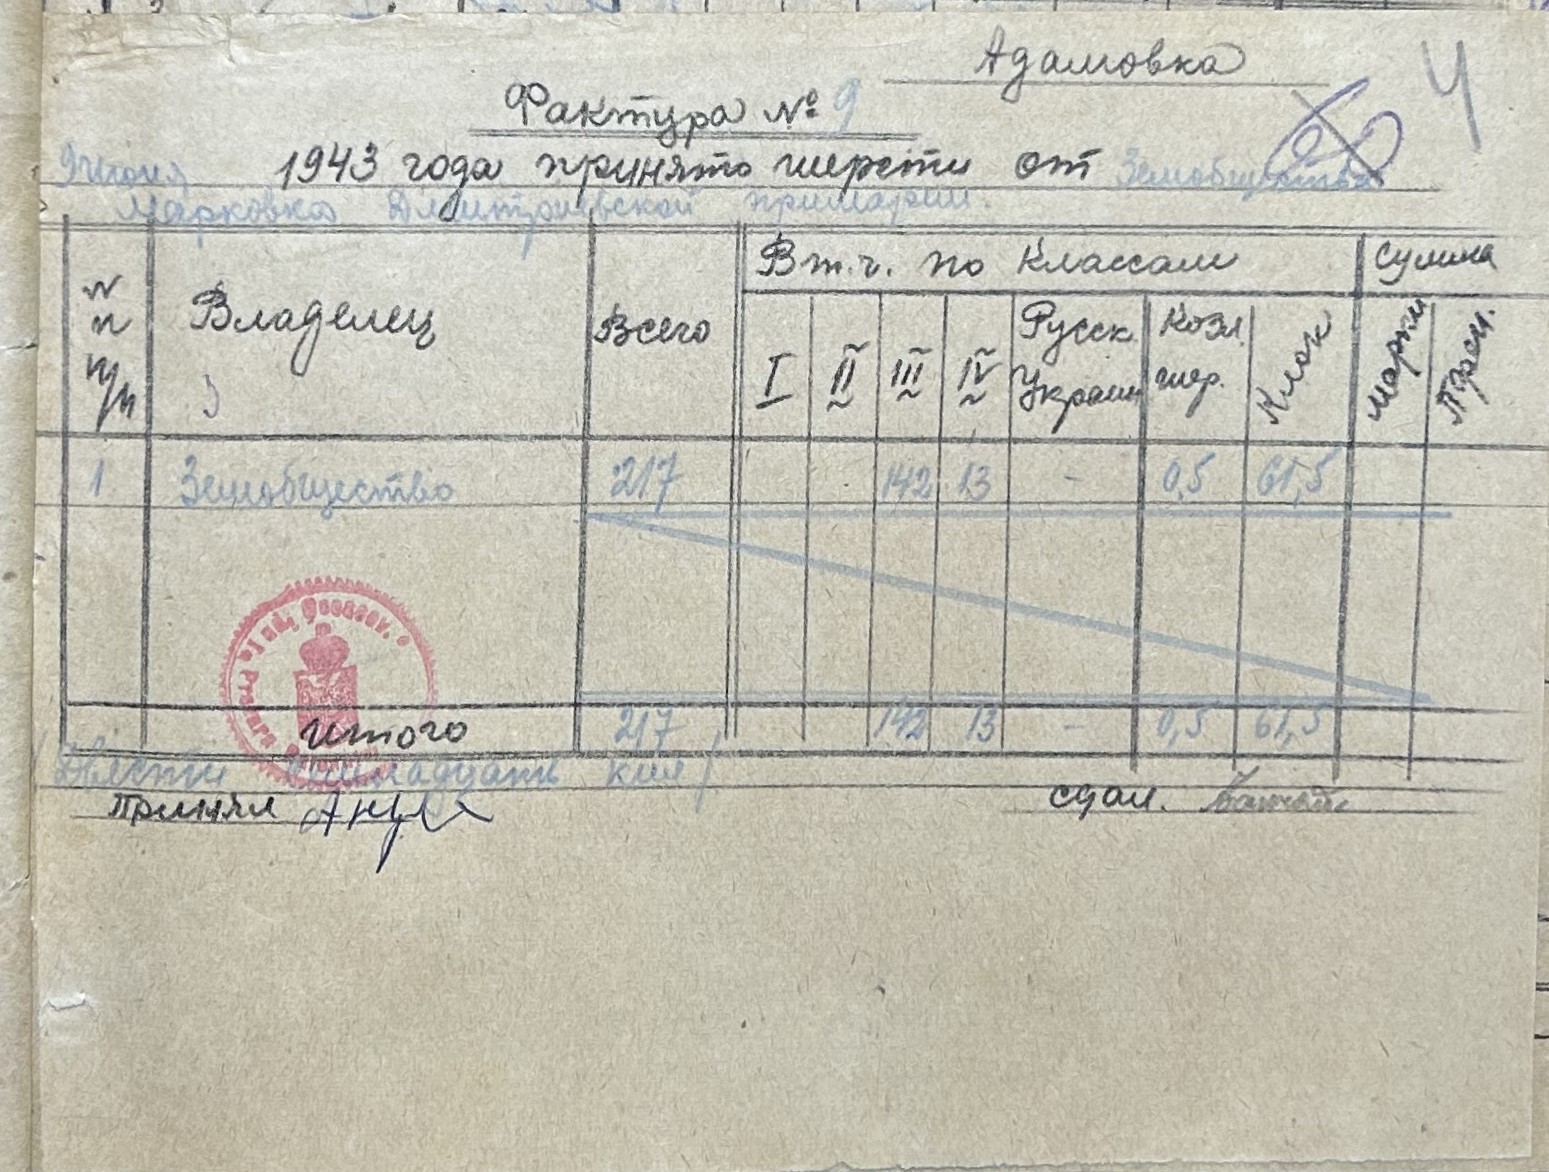 Адамовка
4
Фактура № 9
9 июня 1943 года принято шерсти от Земобщества
Марковка Дмитриевской примарии.
№ п п/п Владелец Всего В т.ч. по классам Сумма
I II III IV Русск. Украин Козл. шер. Клок марки
1 Земобщество 217 142 13 - 0,5 61,5
Итого 217 142 13 - 0,5 61,5
/Двести семнадцать кил/
Принял Сдал.